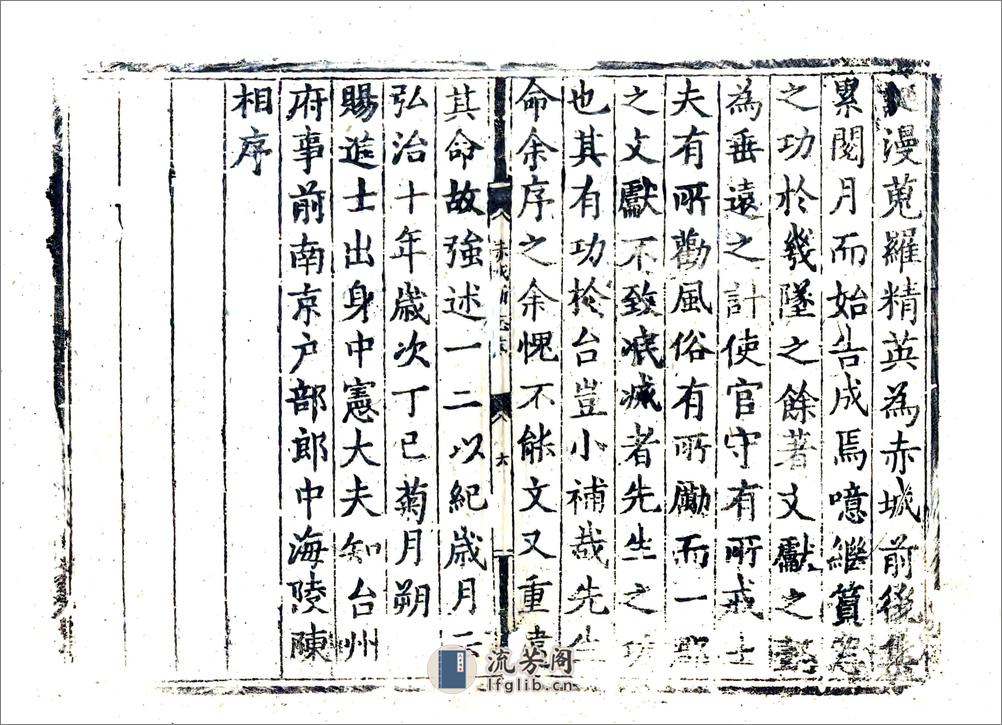 漫蒐羅精英為赤城前後集
累閱月而始告成焉噫繼篔
之功於幾墜之餘著文獻之
為垂遠之計使官守有所戒士
夫有所勸風俗有所勵而一郡
之文獻不致泯滅者先生之功
也其有功於台豈小補哉先生
命余序之余愧不能文又重違
其命故強述一二以紀歲月云
弘治十年歲次丁巳菊月朔
賜進士出身中憲大夫知台州
府事前南京户部郎中海陵陳
相序
赤城新志序
六
流芳阁
lfglib.cn